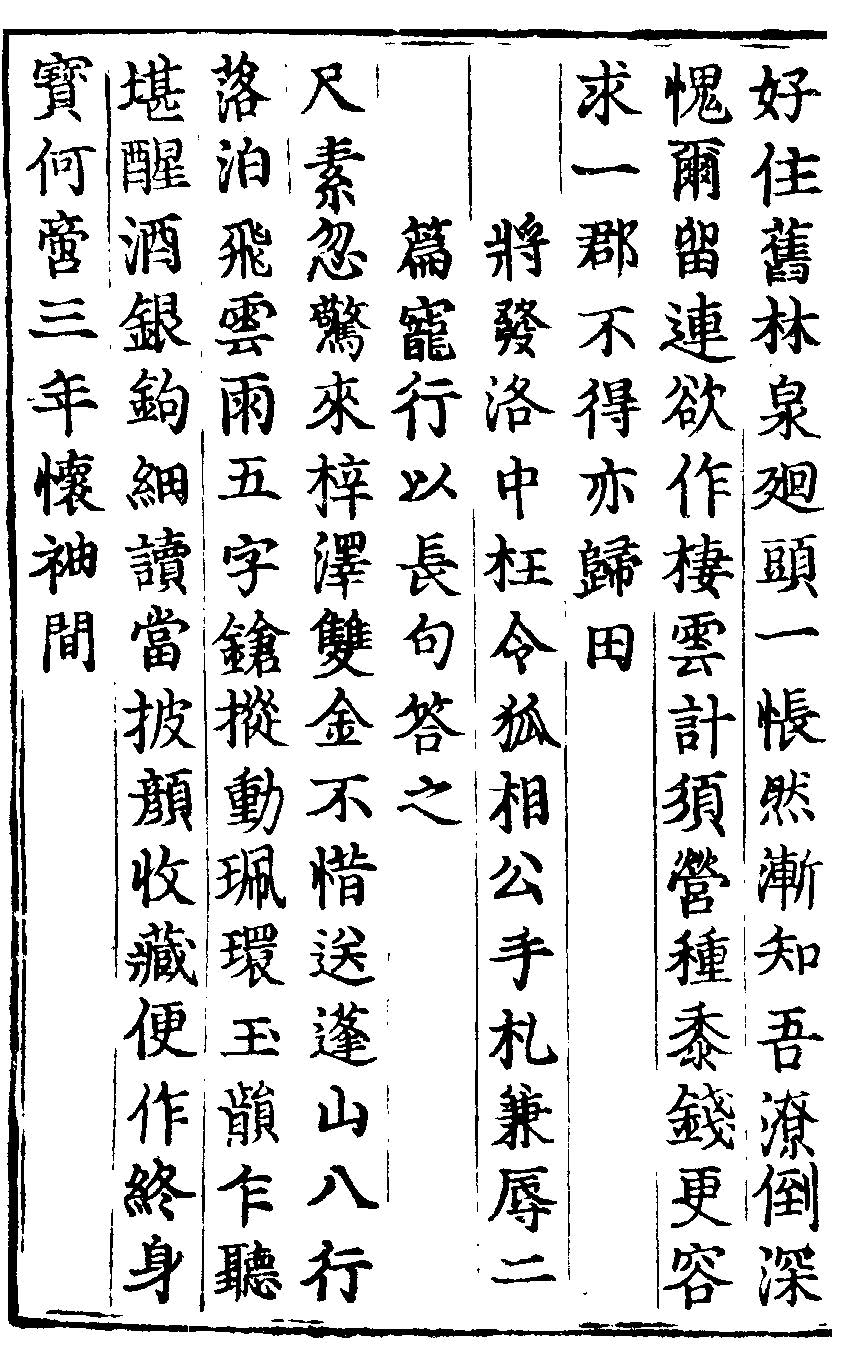 好住舊林泉廻頭一悵然漸知吾潦倒深
愧爾留連欲作棲雲計須營種黍錢更容
求一郡不得亦歸田
將發洛中枉令狐相公手札兼辱二
篇寵行以長句答之
尺素忽驚來梓澤雙金不惜送蓬山八行
落泊飛雲雨五字鎗摐動珮環玉韻乍聽
堪醒酒銀鉤細讀當披顏收藏便作終身
寶何啻三年懷袖間